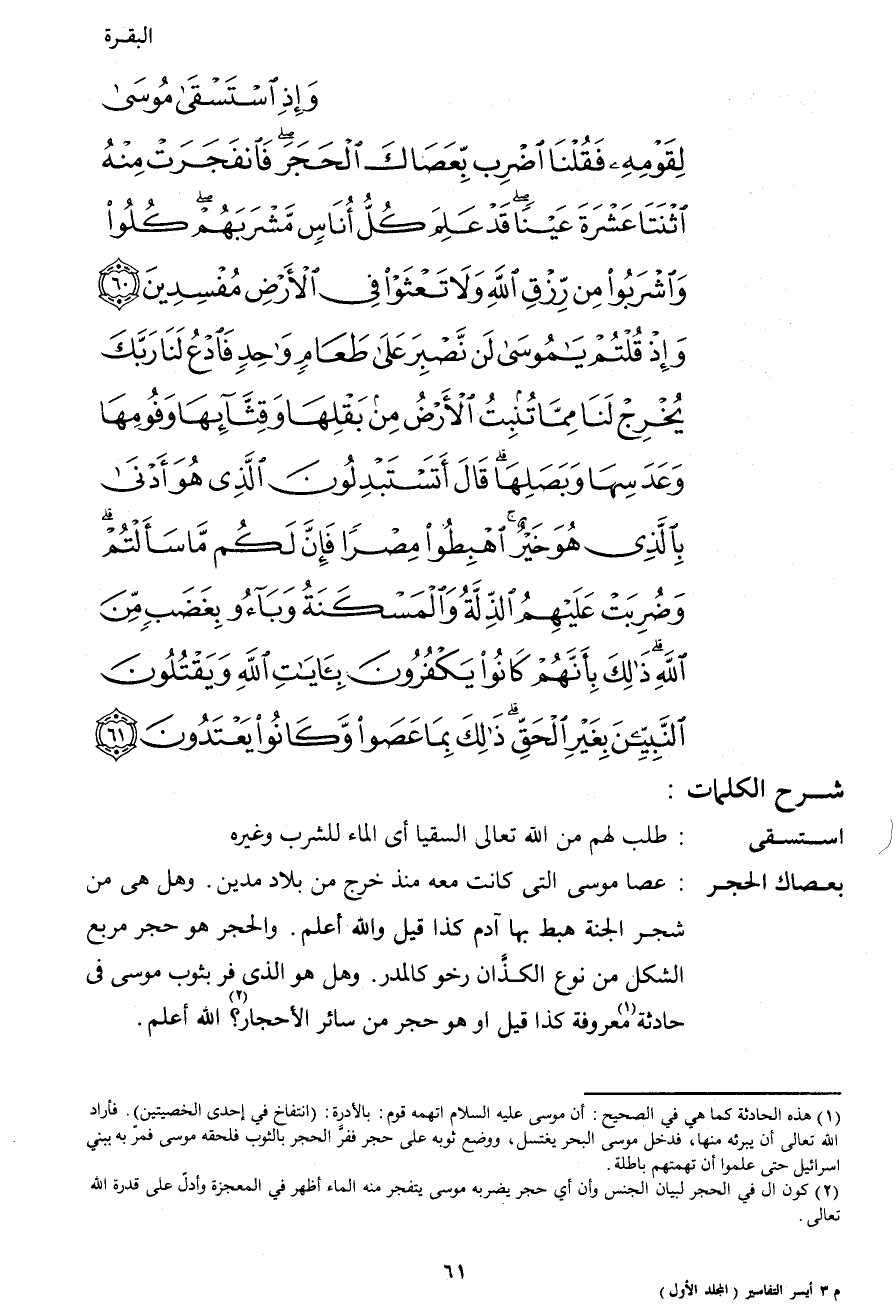 البقرة
وَإِذِ ٱسْتَسْقَىٰ مُوسَىٰ
لِقَوْمِهِۦ فَقُلْنَا ٱضْرِب بِّعَصَاكَ ٱلْحَجَرَۖ فَٱنفَجَرَتْ مِنْهُ
ٱثْنَتَا عَشْرَةَ عَيْنًاۖ قَدْ عَلِمَ كُلُّ أُنَاسٍ مَّشْرَبَهُمْۖ كُلُوا۟
وَٱشْرَبُوا۟ مِن رِّزْقِ ٱللَّهِ وَلَا تَعْثَوْا۟ فِى ٱلْأَرْضِ مُفْسِدِينَ ٦٠
وَإِذْ قُلْتُمْ يَـٰمُوسَىٰ لَن نَّصْبِرَ عَلَىٰ طَعَامٍ وَٰحِدٍ فَٱدْعُ لَنَا رَبَّكَ
يُخْرِجْ لَنَا مِمَّا تُنۢبِتُ ٱلْأَرْضُ مِنۢ بَقْلِهَا وَقِثَّآئِهَا وَفُومِهَا
وَعَدَسِهَا وَبَصَلِهَاۖ قَالَ أَتَسْتَبْدِلُونَ ٱلَّذِى هُوَ أَدْنَىٰ
بِٱلَّذِى هُوَ خَيْرٌۚ ٱهْبِطُوا۟ مِصْرًا فَإِنَّ لَكُم مَّا سَأَلْتُمْۗ
وَضُرِبَتْ عَلَيْهِمُ ٱلذِّلَّةُ وَٱلْمَسْكَنَةُ وَبَآءُو بِغَضَبٍ مِّنَ
ٱللَّهِۗ ذَٰلِكَ بِأَنَّهُمْ كَانُوا۟ يَكْفُرُونَ بِـَٔايَـٰتِ ٱللَّهِ وَيَقْتُلُونَ
ٱلنَّبِيِّـۧنَ بِغَيْرِ ٱلْحَقِّۗ ذَٰلِكَ بِمَا عَصَوا۟ وَّكَانُوا۟ يَعْتَدُونَ ٦١
شرح الكلمات :
استسقى : طلب لهم من الله تعالى السقيا أى الماء للشرب وغيره
بعصاك الحجر : عصا موسى التى كانت معه منذ خرج من بلاد مدين. وهل هى من
شجر الجنة هبط بها آدم كذا قيل والله أعلم. والحجر هو حجر مربع
الشكل من نوع الكذَّان رخو كالمدر. وهل هو الذى فر بثوب موسى فى
حادثة(١) معروفة كذا قيل او هو حجر من سائر الأحجار؟(٢) الله أعلم.
(١) هذه الحادثة كما هي في الصحيح : أن موسى عليه السلام اتهمه قوم: بالأدرة: (انتفاخ في إحدى الخصيتين). فأراد
الله تعالى أن يبرئه منها، فدخل موسى البحر يغتسل، ووضع ثوبه على حجر ففرَّ الحجر بالثوب فلحقه موسى فمرّ به ببني
اسرائيل حتى علموا أن تهمتهم باطلة.
(٢) كون ال في الحجر لبيان الجنس وأن أي حجر يضربه موسى يتفجر منه الماء أظهر في المعجزة وأدلّ على قدرة الله
تعالى.
٦١
م ٣ أيسر التفاسير ( المجلد الأول )